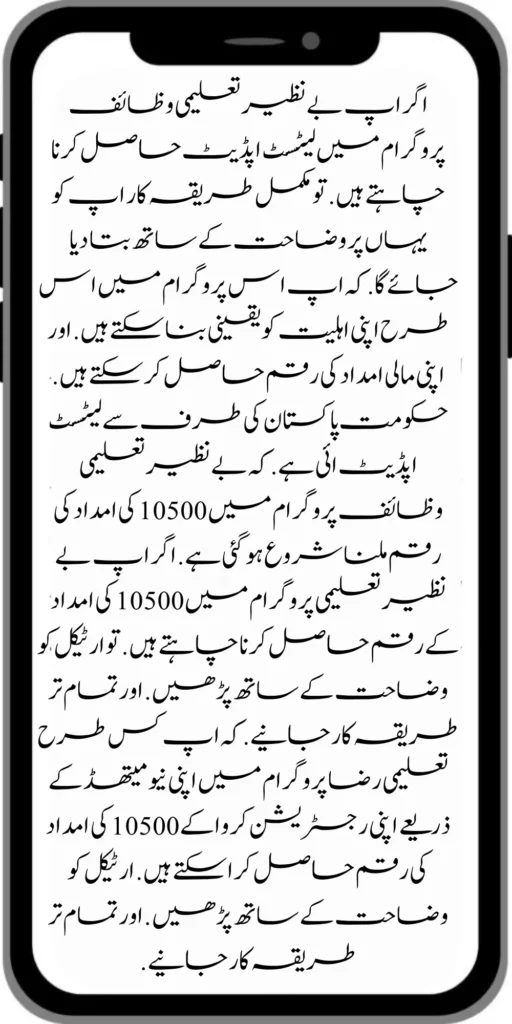 اگر اپ بے نظیر تعلیمی وظائف
پروگرام میں لیٹسٹ اپڈیٹ حاصل کرنا
چاہتے ہیں. تو مکمل طریقہ کار اپ کو
یہاں پر وضاحت کے ساتھ بتا دیا
جائے گا. کہ اپ اس پروگرام میں اس
طرح اپنی اہلیت کو یقینی بنا سکتے ہیں. اور
اپنی مالی امداد کی رقم حاصل کر سکتے ہیں.
حکومت پاکستان کی طرف سے لیٹسٹ
اپڈیٹ ائی ہے. کہ بے نظیر تعلیمی
وظائف پروگرام میں 10500 کی امداد کی
رقم ملنا شروع ہو گئی ہے. اگر اپ بے
نظیر تعلیمی پروگرام میں 10500 کی امداد
کے رقم حاصل کرنا چاہتے ہیں. تو ارٹیکل کو
وضاحت کے ساتھ پڑھیں. اور تمام تر
طریقہ کار جانیے. کہ اپ کس طرح
تعلیمی رضا پروگرام میں اپنی نیو میتھڈ کے
ذریعے اپنی رجسٹریشن کروا کے 10500 کی امداد
کی رقم حاصل کرا سکتے ہیں. ارٹیکل کو
وضاحت کے ساتھ پڑھیں. اور تمام تر
طریقہ کار جانیے.